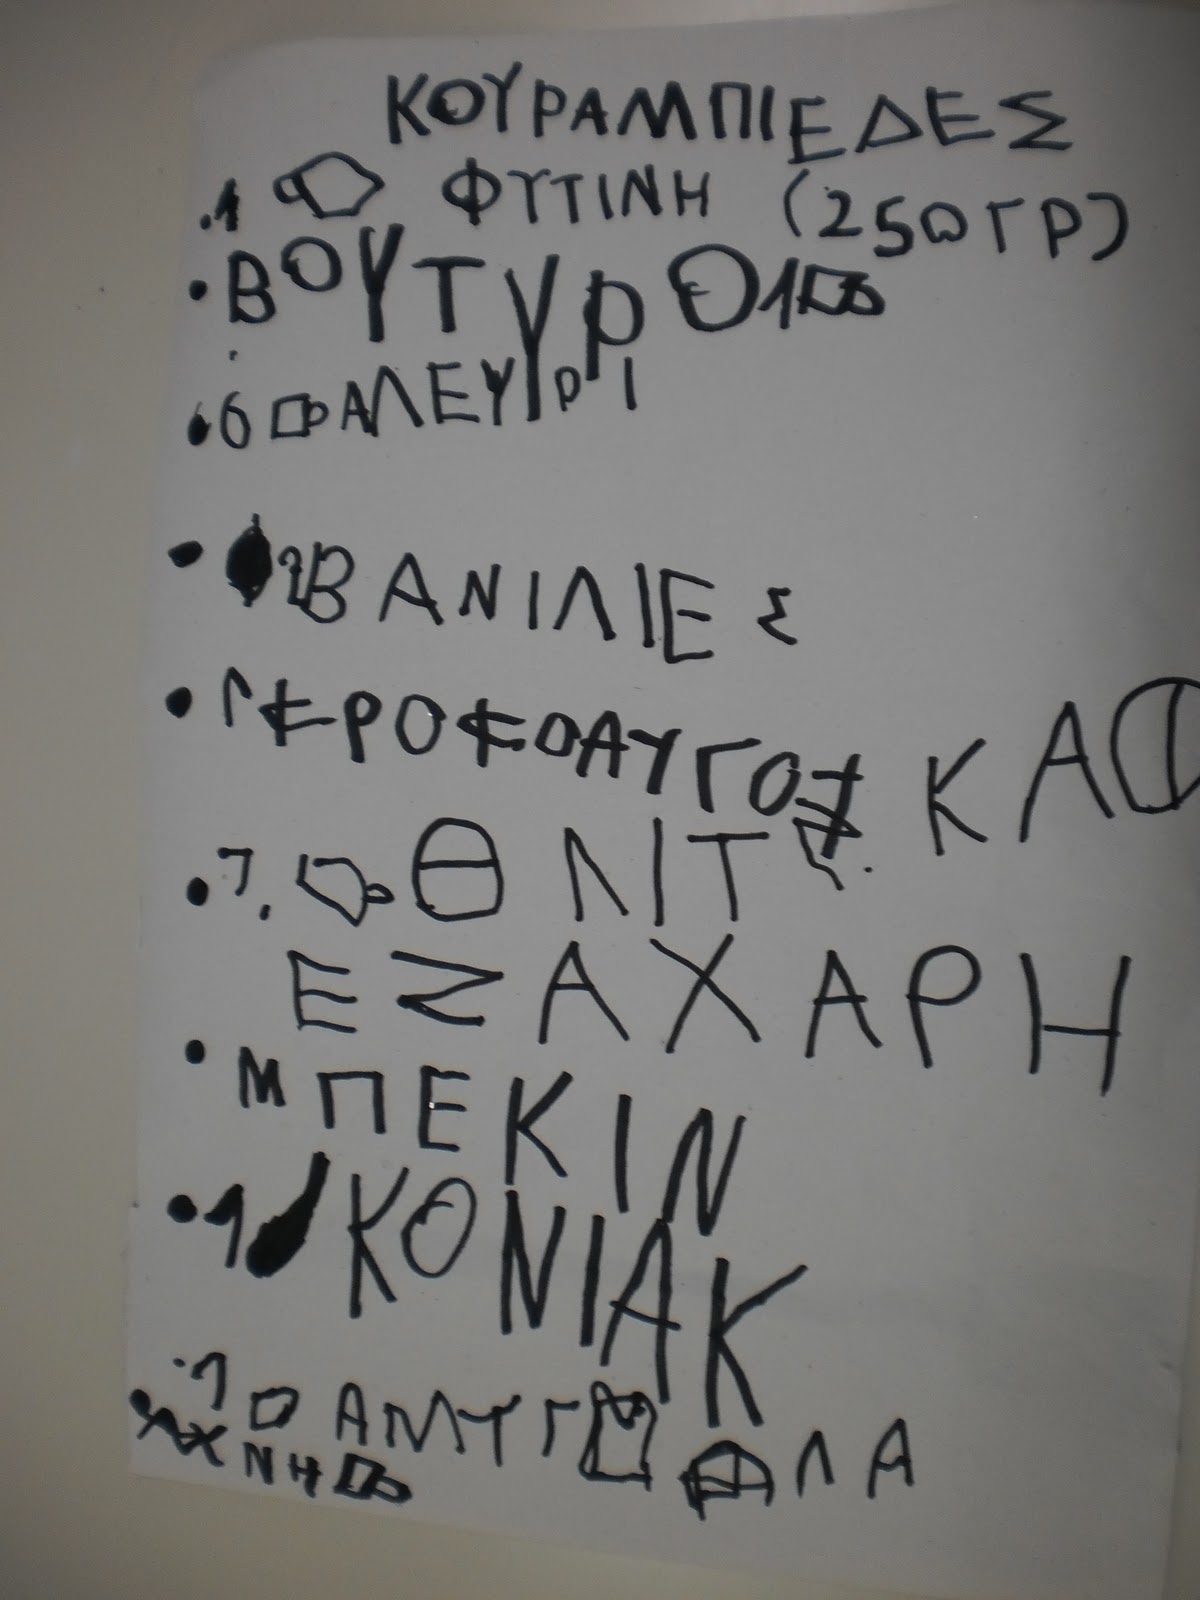 ΚΟΥΡΑΜΠΙΕΔΕΣ
.1 ΦΥΤΙΝΗ (250 ΓΡ)
• ΒΟΥΤΥΡΟ 1
• 6 ΑΛΕΥΡΙ
• 2 ΒΑΝΙΛΙΕΣ
• ΚΑΦ
• 1. ΝΙΤ
ΕΖΑΧΑΡΗ
• ΜΠΕΚΙΝ
• 1 ΚΟΝΙΑΚ
• 1 ΑΜΥΓΔΑΛΑ
• ΑΧΝΗ